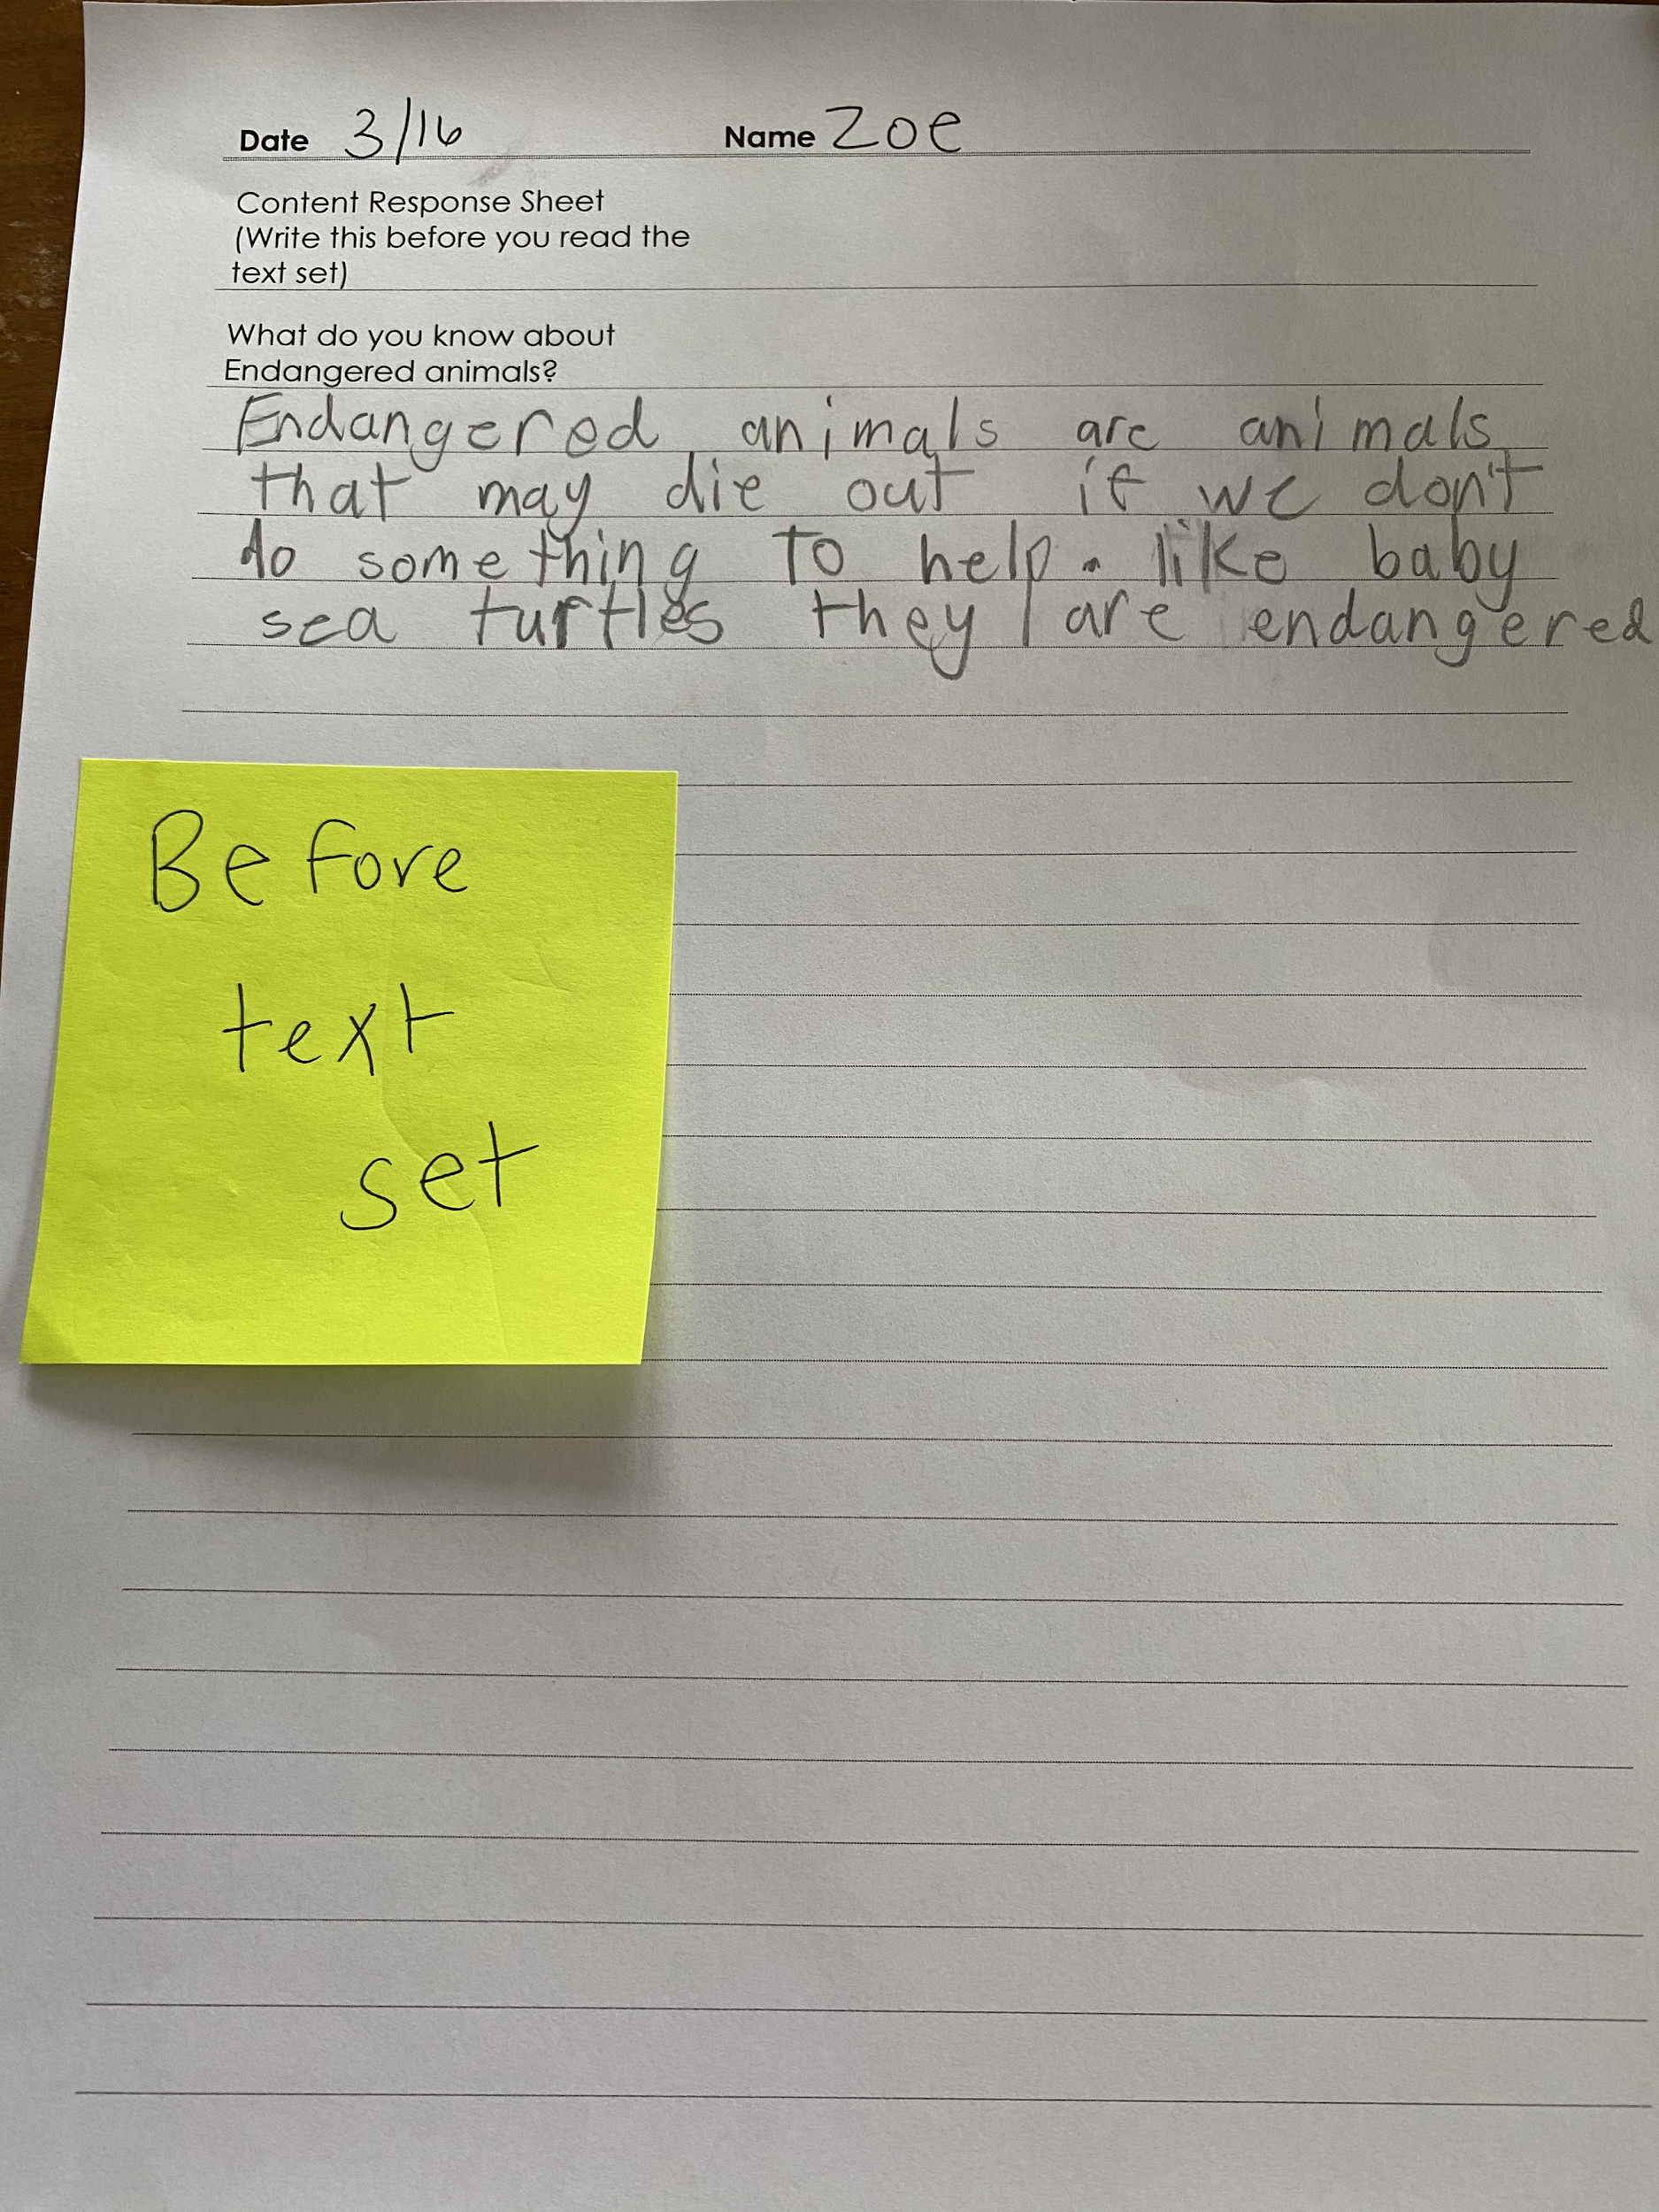 Date 3/16 Name Zoe
Content Response Sheet
(Write this before you read the
text set)
What do you know about
Endangered animals?
Endangered animals are animals
that may die out if we don't
do something To help. like baby
sea turtles they are endangered
Before
text
set